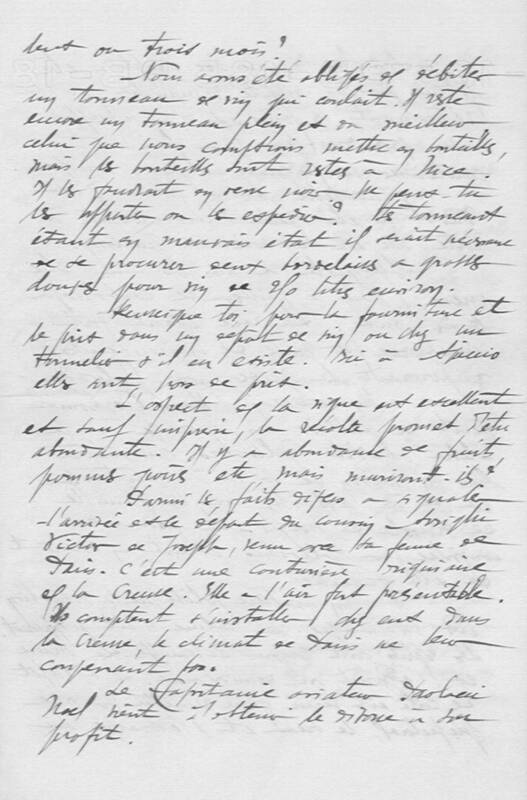 deux ou trois mois?
Nous avons été obligés de débiter
un tonneau de vin qui coulait. Il reste
encore un tonneau plein et du meilleur
celui que nous comptions mettre en bouteilles,
mais les bouteilles sont restées à Nice.
Il les faudrait en venir ne peux-tu
les apporter ou les expédier? Les tonneaux
étant en mauvais état il serait nécessaire
de se procurer deux bordelaises à grosses
douves pour vin de 230 litres environ.
Renseigne toi pour la fourniture et
le prix dans un dépôt de vin ou chez un
tonnelier s'il en existe. Ici à Ajaccio
elles sont hors de prix.
L'aspect de la vigne est excellent
et sauf imprévu, la récolte promet d'être
abondante. Il y a abondance de fruits
pommes poires etc mais muriront-ils?
Parmi les faits divers à signaler
l'arrivée et le départ du cousin
Victor de Joseph, venu avec sa femme de
Paris. C'est une couturière originaire
de la Creuse. Elle a l'air fort présentable.
Ils comptent s'installer chez eux dans
la Creuse, le climat de Paris ne leur
convenant pas.
Le Capitaine aviateur
Noel vient d'obtenir le divorce à son
profit.